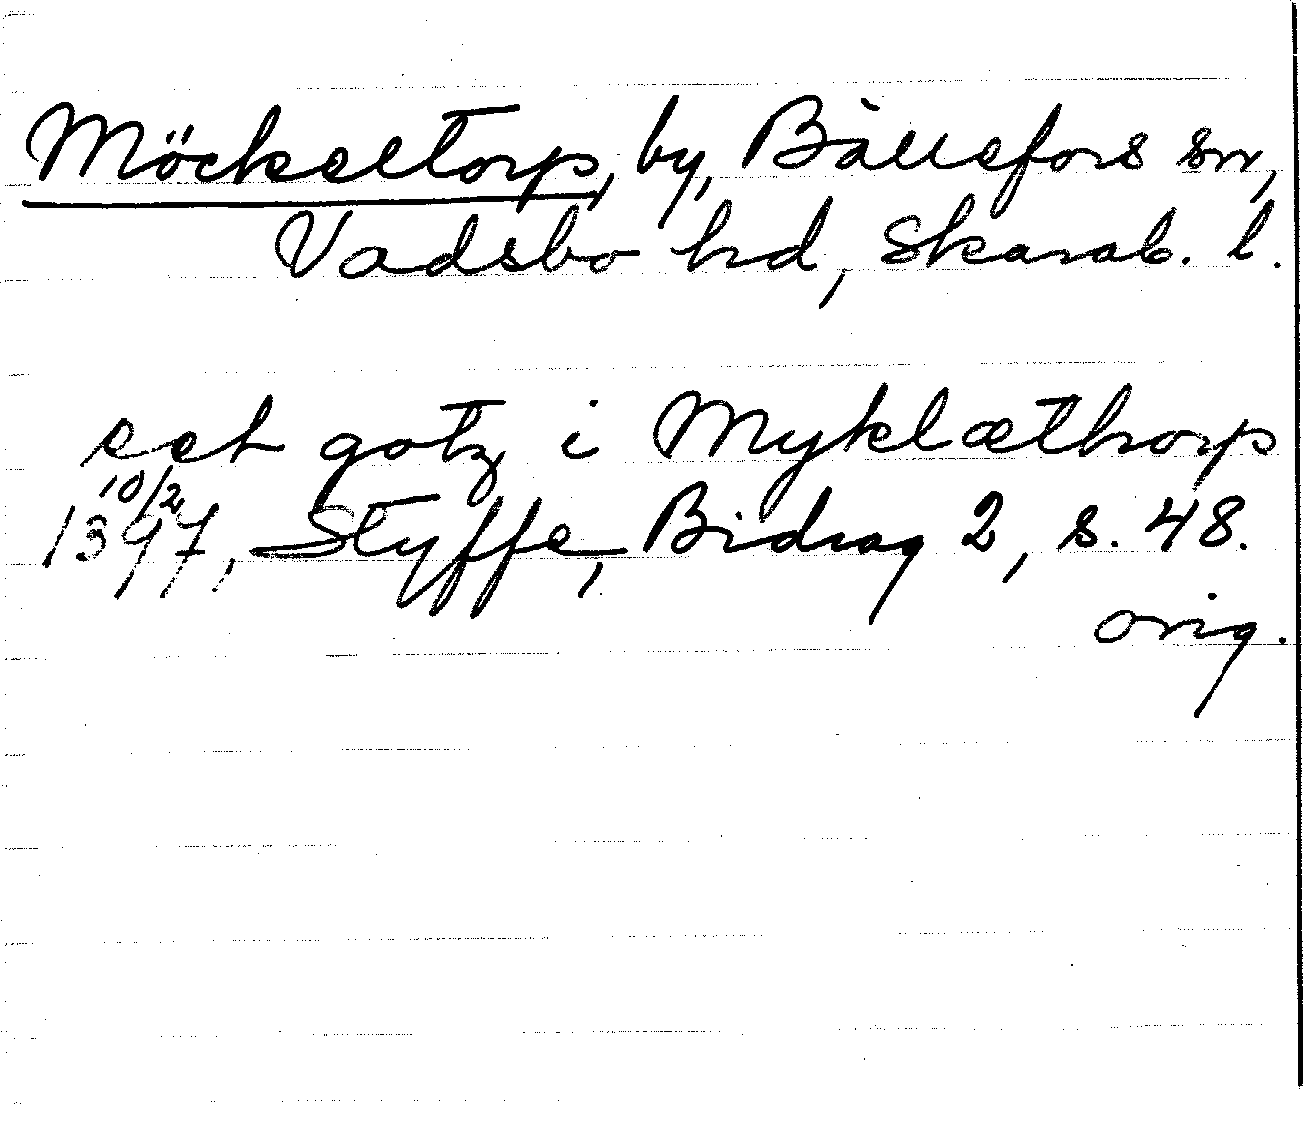 Möckeltorp, by, Bällefors sn,
Vadsbo hd, Skarab. l.
eet gotz i Myklæthorp
10/2
1397, Styffe, Bidrag 2, s. 48.
orig.